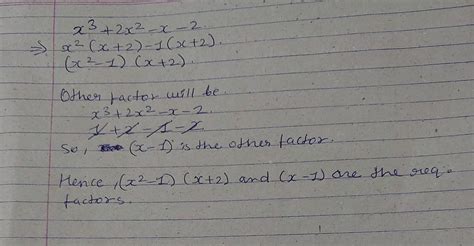 x³+2x²-x-2
⇒ x²(x+2)-1(x+2).
(x²-1) (x+2).
Other factor will be.
x³+2x²-x-2.
1+2-1-2
So, (x-1) is the other factor.
Hence, (x²-1) (x+2) and (x-1) are the req.
factors.